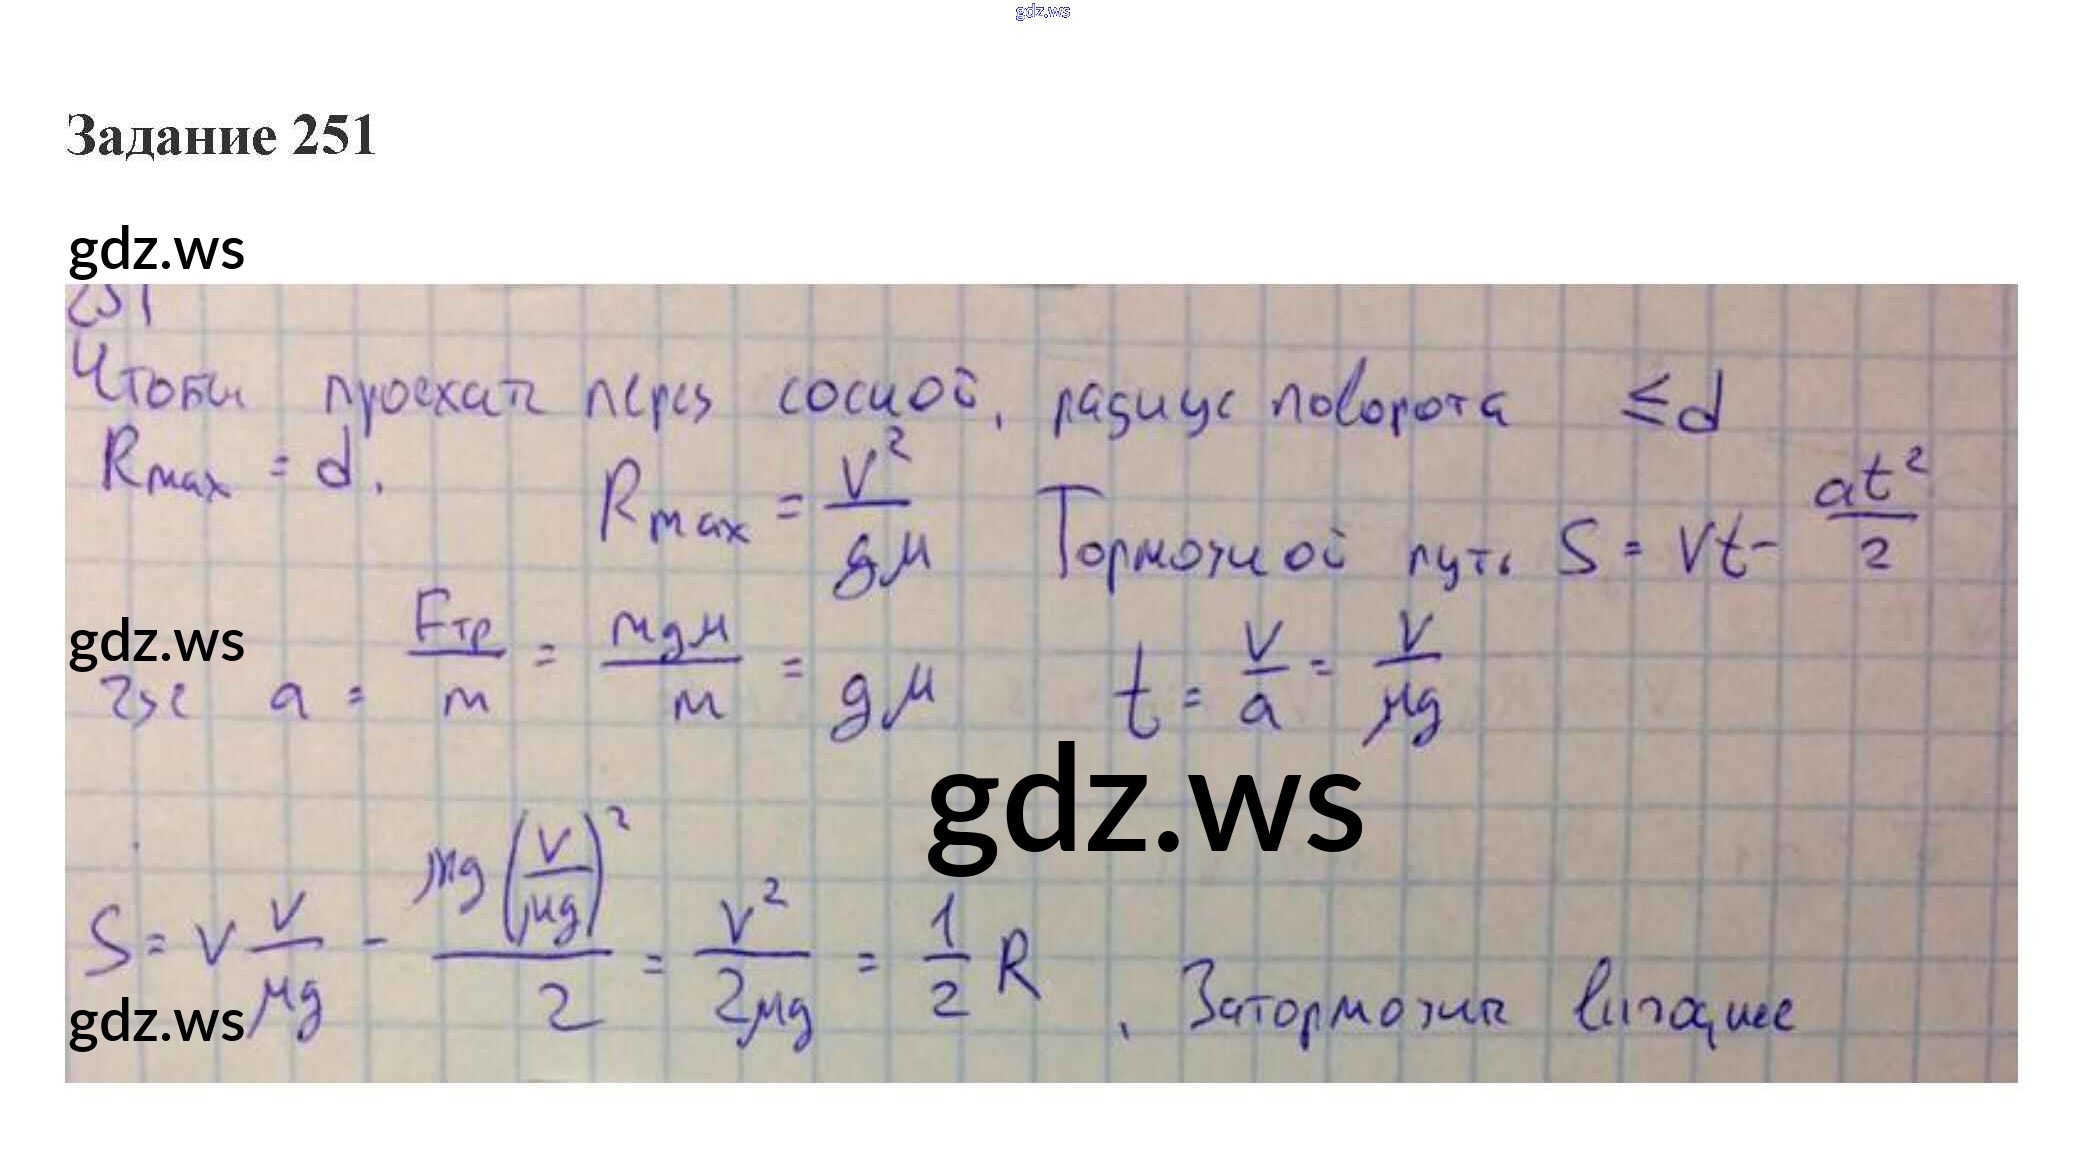 gdz.ws
Задание 251
gdz.ws
251
Чтобы проехать перед сосной, радиус поворота ≤ d
Rmax = d. Rmax = v²/gμ Тормозной путь S = vt - at²/2
gdz.ws
где a = Fтр/m = mgμ/m = gμ t = v/a = v/μg
gdz.ws
S = v v/μg - μg(v/μg)²/2 = v²/2μg = 1/2 R, Затормозить выгоднее
gdz.ws